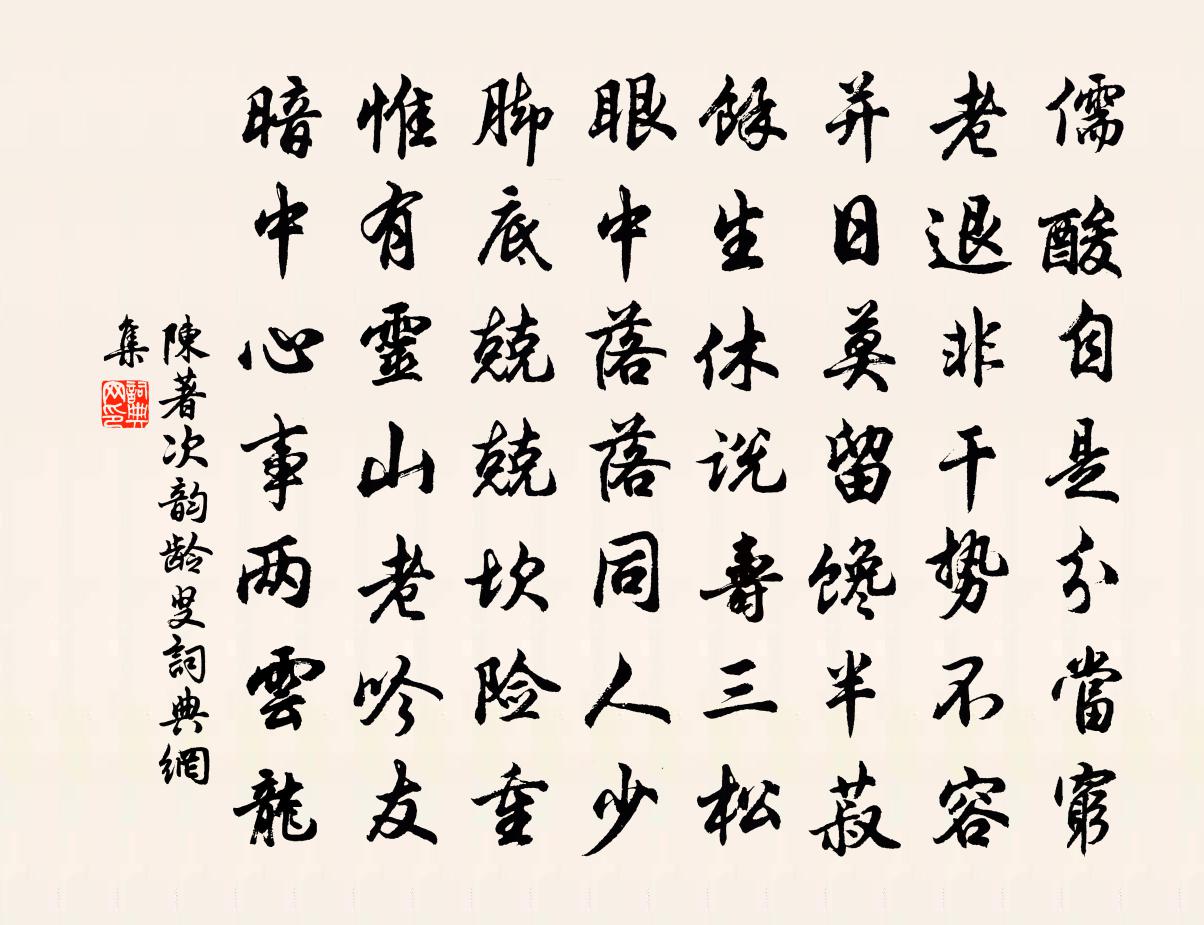 儒酸自是分當窮
老退非干势不容
并日莫留馋半菽
餘生休说壽三松
眼中落落同人少
脚底兢兢坎险重
惟有靈山老吟友
暗中心事两雲龍
陳著次韵龄叟詞典網
集
詞典网印